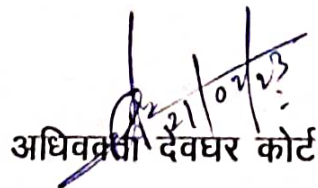 21/02/23
अधिवक्ता देवघर कोर्ट